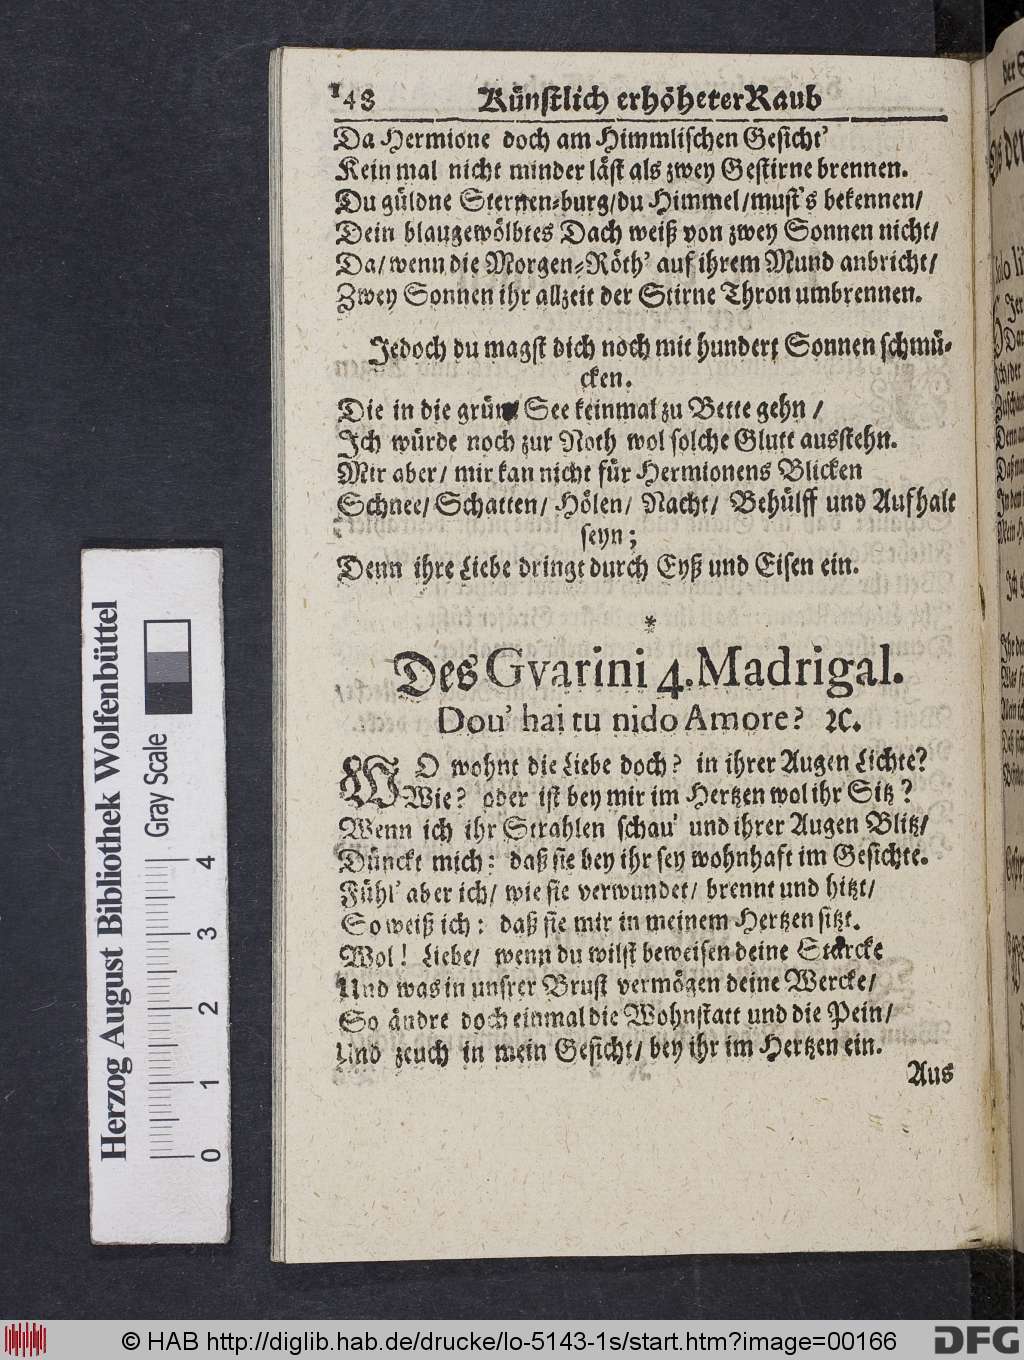 148 Künstlich erhöheter Raub
Da Hermione doch am Himmlischen Gesicht'
Kein mal nicht minder läst als zwey Gestirne brennen.
Du güldne Sternen-burg/du Himmel/must's bekennen/
Dein blaugewölbtes Dach weiß von zwey Sonnen nicht/
Da/ wenn die Morgen-Röth' auf ihrem Mund anbricht/
Zwey Sonnen ihr allzeit der Stirne Thron umbrennen.
Jedoch du magst dich noch mit hundert Sonnen schmü-
cken.
Die in die grüne See keinmal zu Bette gehn /
Ich würde noch zur Noth wol solche Glutt ausstehn.
Mir aber/ mir kan nicht für Hermionens Blicken
Schnee/ Schatten/ Hölen/ Nacht/ Behülff und Aufhalt
seyn;
Denn ihre Liebe dringt durch Eyß und Eisen ein.
*
Des Gvarini 4. Madrigal.
Dou' hai tu nido Amore? ꝛc.
WO wohnt die Liebe doch? in ihrer Augen Lichte?
Wie? oder ist bey mir im Hertzen wol ihr Sitz?
Wenn ich ihr Strahlen schau' und ihrer Augen Blitz/
Dünckt mich: daß sie bey ihr sey wohnhaft im Gesichte.
Fühl' aber ich/ wie sie verwundet/ brennt und hitzt/
So weiß ich: daß sie mir in meinem Hertzen sitzt.
Wol! Liebe/ wenn du wilst beweisen deine Stärcke
Und was in unsrer Brust vermögen deine Wercke/
So ändre doch einmal die Wohnstatt und die Pein/
Und zeuch in mein Gesicht/ bey ihr im Hertzen ein.
Aus
Herzog August Bibliothek Wolfenbüttel
Gray Scale
0 1 2 3 4
© HAB http://diglib.hab.de/drucke/lo-5143-1s/start.htm?image=00166
DFG